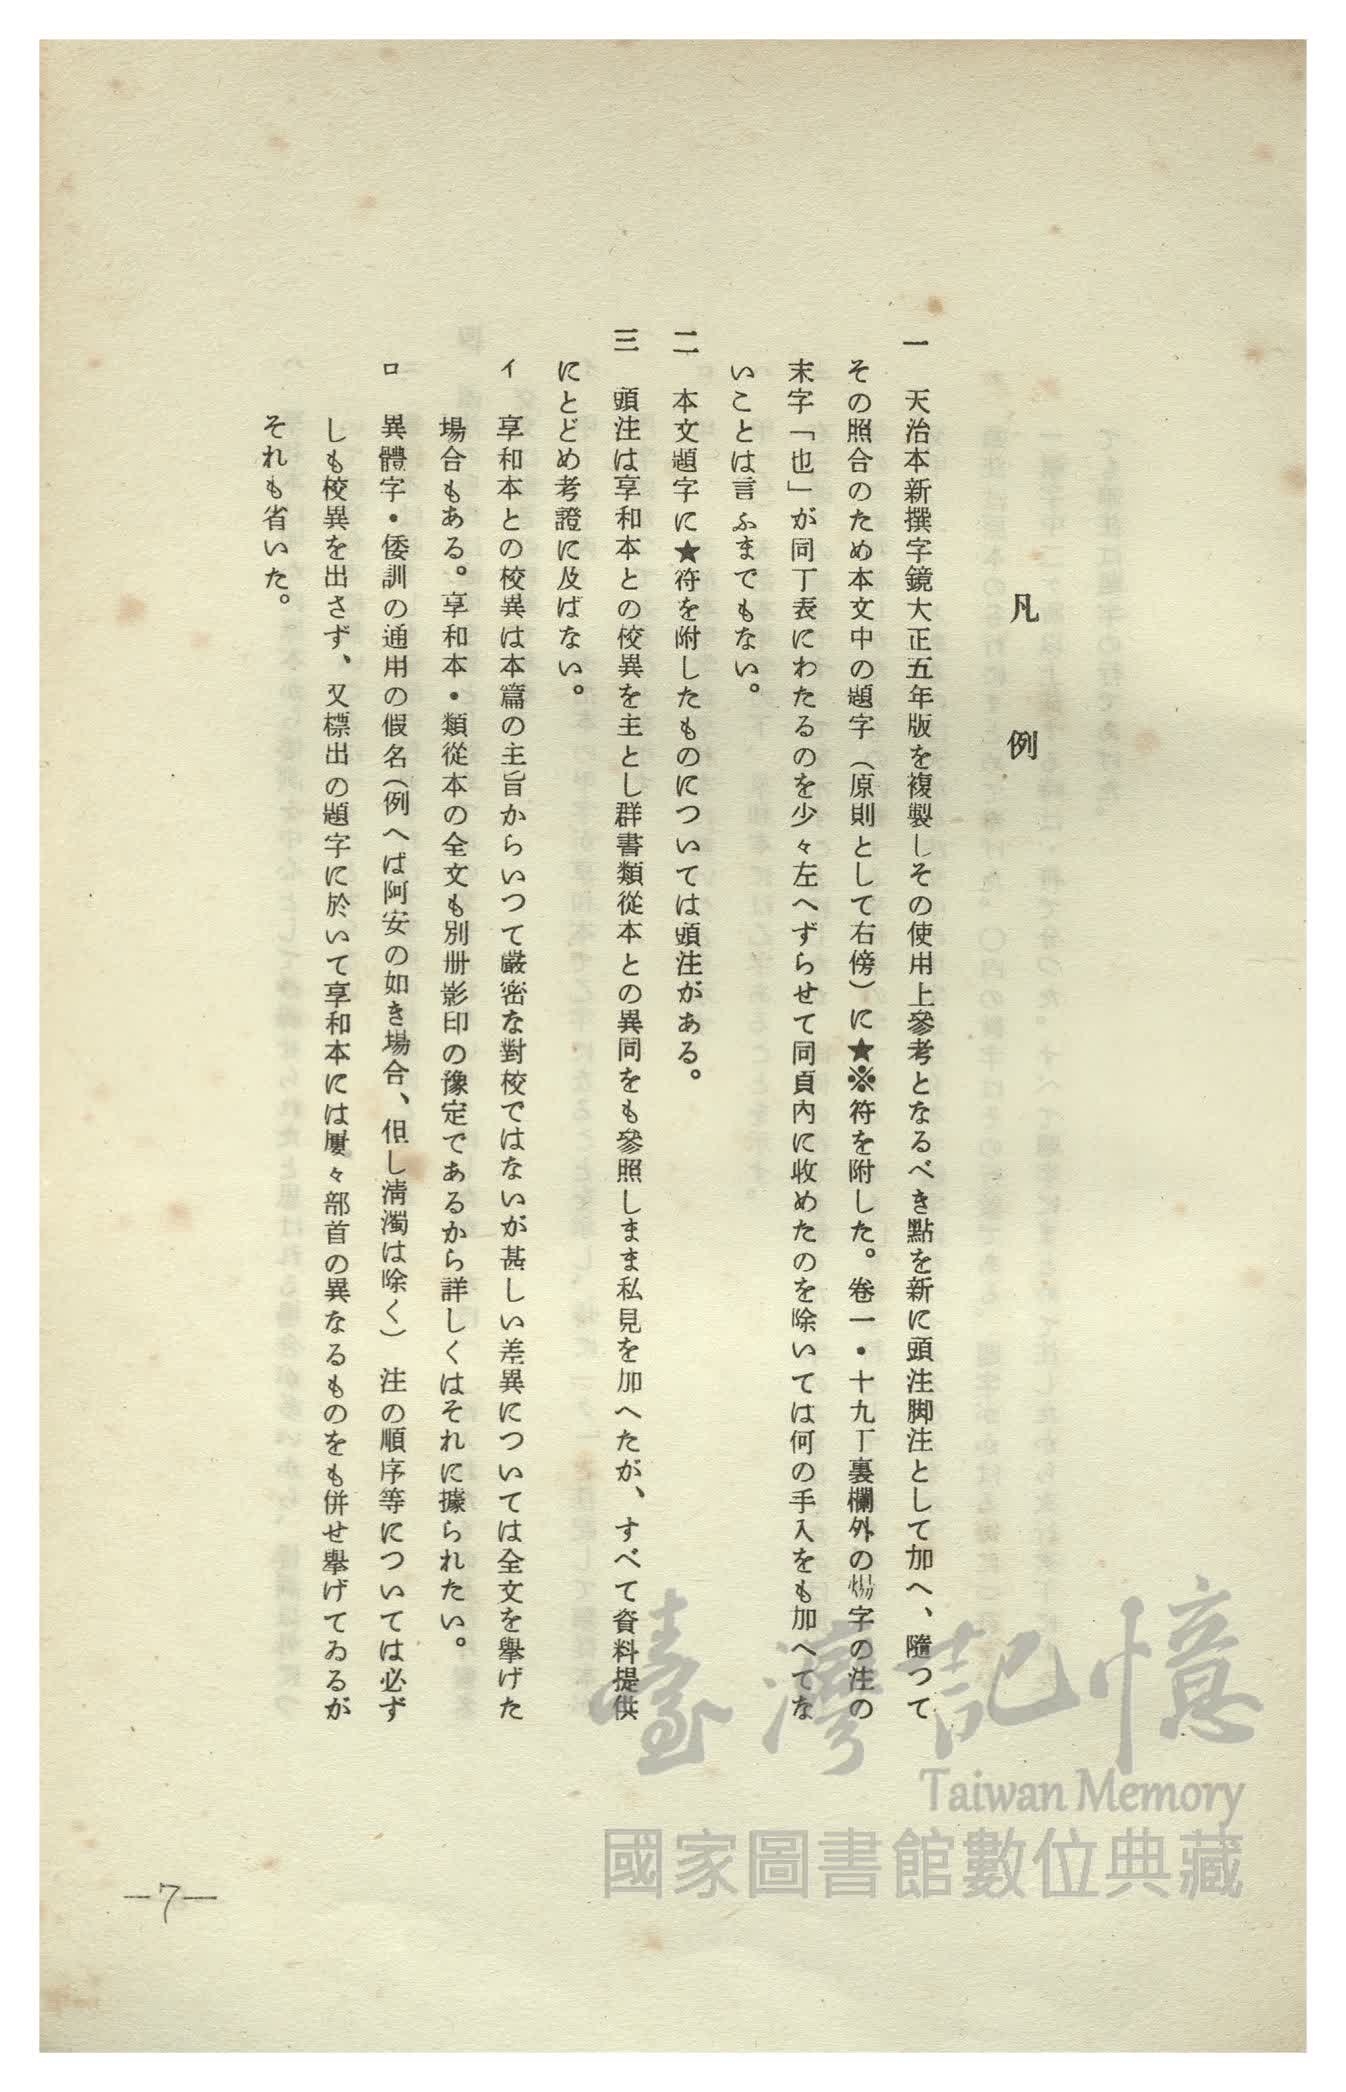 凡例
一 天治本新撰字鏡大正五年版を複製しその使用上參考となるべき點を新に頭注脚注として加へ、隨つて
その照合のため本文中の題字（原則として右傍）に★※符を附した。卷一・十九丁裏欄外の字の注の
末字「也」が同丁表にわたるのを少々左へずらせて同頁內に收めたのを除いては何の手入をも加へてな
いことは言ふまでもない。
二 本文題字に★符を附したものについては頭注がある。
三 頭注は享和本との校異を主とし群書類從本との異同をも參照しまま私見を加へたが、すべて資料提供
にとどめ考證に及ばない。
イ 享和本との校異は本篇の主旨からいつて嚴密な對校ではないが甚しい差異については全文を擧げた
場合もある。享和本・類從本の全文も別册影印の豫定であるから詳しくはそれに據られたい。
ロ 異體字・倭訓の通用の假名（例へば阿安の如き場合、但し淸濁は除く）注の順序等については必ず
しも校異を出さず、又標出の題字に於いて享和本には屢々部首の異なるものをも併せ擧げてゐるが
それも省いた。
—7—
臺灣記憶
Taiwan Memory
國家圖書館數位典藏